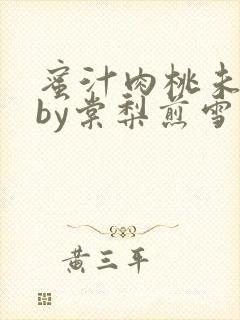 蜜汁肉桃未
by棠梨煎雪
黄三平